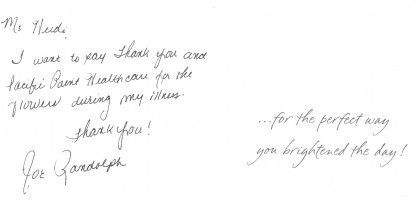 Ms Heidi,
I want to say thank you and
Pacific Point Healthcare for the
flowers during my illness.
Thank you!
Joe Randolph
...for the perfect way
you brightened the day!